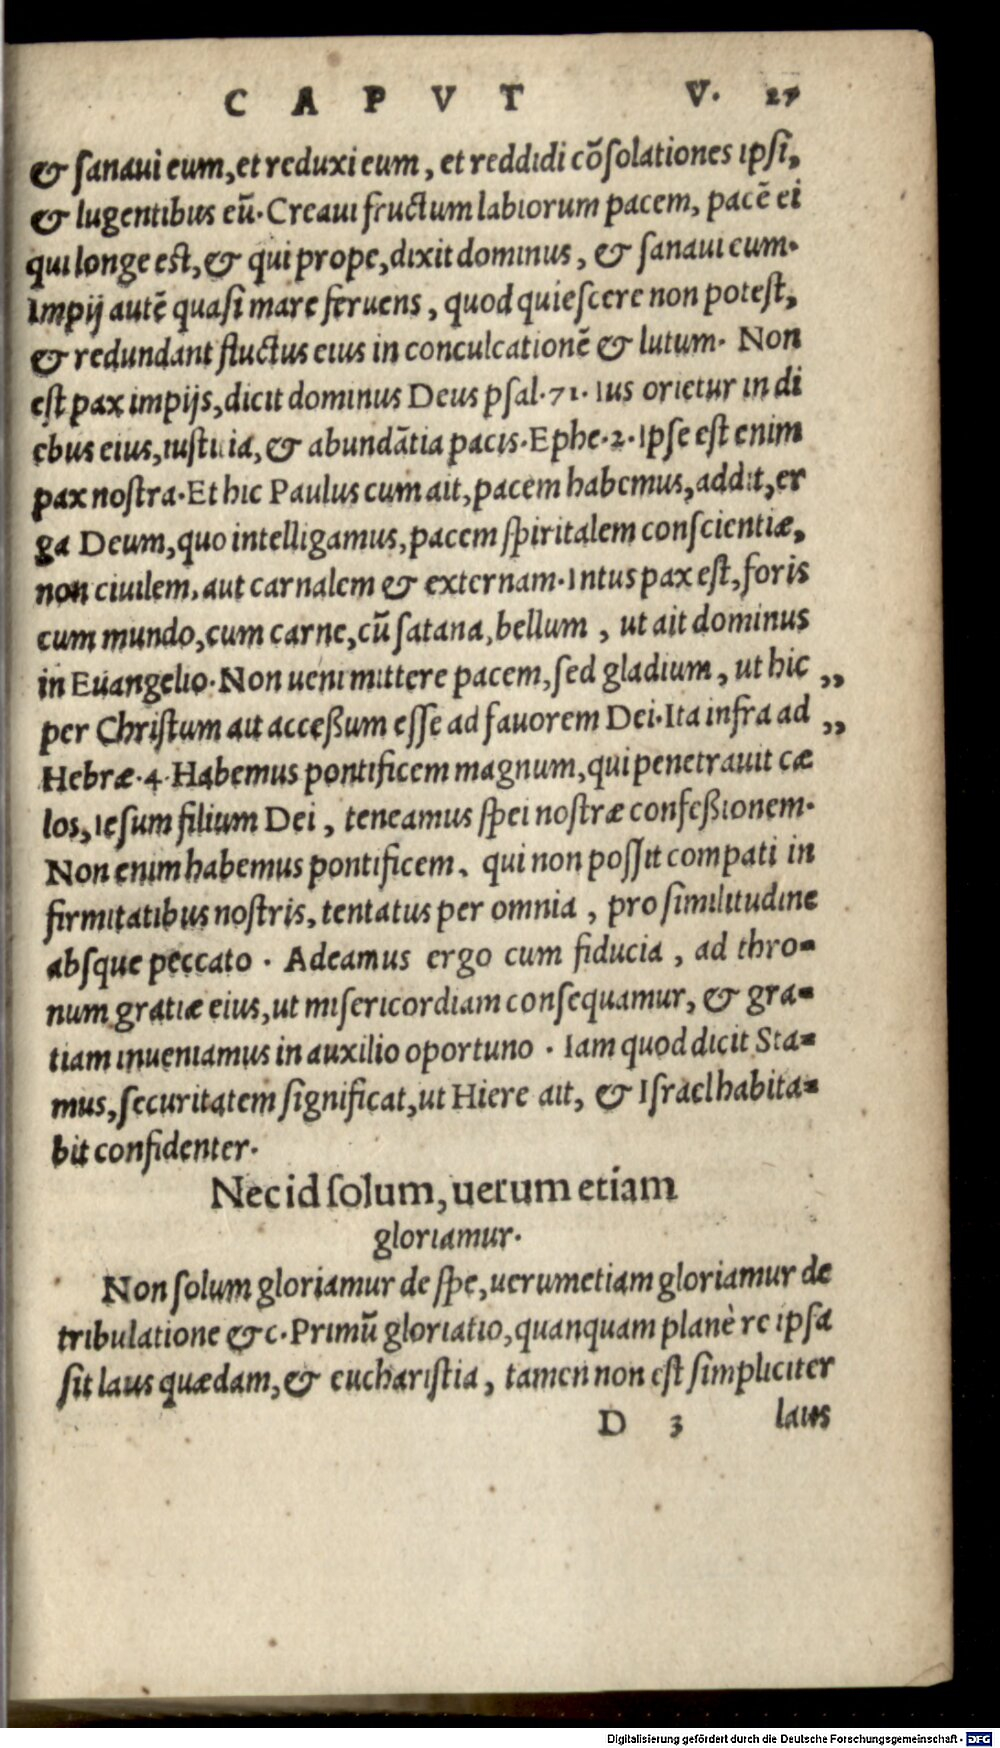 CAPVT V. 27
& sanaui eum, et reduxi eum, et reddidi cõsolationes ipsi,
& lugentibus eũ. Creaui fructum labiorum pacem, pacẽ ei
qui longe est, & qui prope, dixit dominus, & sanaui eum.
Impij autẽ quasi mare feruens, quod quiescere non potest,
& redundant fluctus eius in conculcationẽ & lutum. Non
est pax impijs, dicit dominus Deus psal. 71. Ius orietur in di
ebus eius, iustitia, & abundãtia pacis. Ephe. 2. Ipse est enim
pax nostra. Et hic Paulus cum ait, pacem habemus, addit, er
ga Deum, quo intelligamus, pacem spiritalem conscientiæ,
non ciuilem, aut carnalem & externam. Intus pax est, foris
cum mundo, cum carne, cũ satana, bellum, ut ait dominus
in Euangelio. Non ueni mittere pacem, sed gladium, ut hic ,,
per Christum ait accessum esse ad fauorem Dei. Ita infra ad ,,
Hebræ. 4. Habemus pontificem magnum, qui penetrauit cæ
los, Iesum filium Dei, teneamus spei nostræ confeßionem.
Non enim habemus pontificem, qui non possit compati in
firmitatibus nostris, tentatus per omnia, pro similitudine
absque peccato. Adeamus ergo cum fiducia, ad thro-
num gratiæ eius, ut misericordiam consequamur, & gra-
tiam inueniamus in auxilio oportuno. Iam quod dicit Sta-
mus, securitatem significat, ut Hiere ait, & Israel habita-
bit confidenter.
Nec id solum, uerum etiam
gloriamur.
Non solum gloriamur de spe, uerumetiam gloriamur de
tribulatione &c. Primũ gloriatio, quanquam planè re ipsa
sit laus quædam, & eucharistia, tamen non est simpliciter
D 3 laus
Digitalisierung gefördert durch die Deutsche Forschungsgemeinschaft - DFG